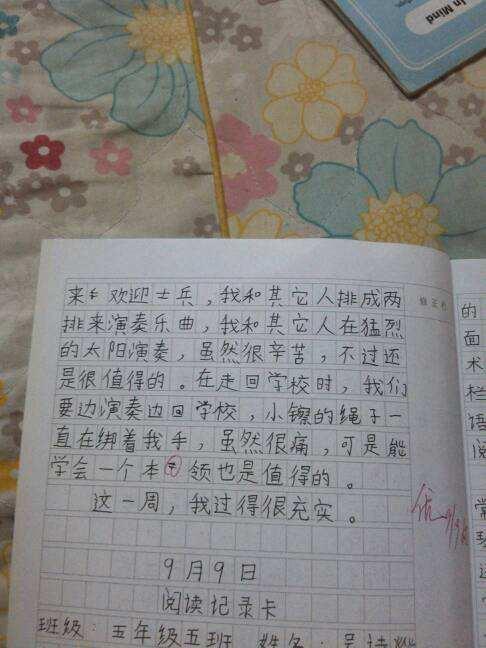 In Mind
来欢迎士兵，我和其它人排成两
排来演奏乐曲，我和其它人在猛烈
的太阳演奏，虽然很辛苦，不过还
是很值得的。在走回学校时，我们
要边演奏边回学校，小镲的绳子一
直在绑着我手，虽然很痛，可是能
学会一个本领也是值得的。
这一周，我过得很充实。
9月9日
阅读记录卡
班级：五年级五班 姓名：吴
的
面
术
栏
语
阅